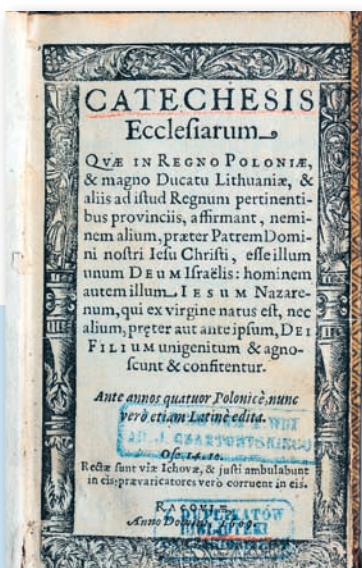 CATECHESIS
Eccleſiarum
QVÆ IN REGNO POLONIÆ,
& magno Ducatu Lithuaniæ, &
aliis ad iſtud Regnum pertinenti-
bus provinciis, affirmant, nemi-
nem alium, præter Patrem Domi-
ni noſtri Ieſu Chriſti, eſſe illum
unum DEUM Iſraëlis: hominem
autem illum IESUM Nazare-
num, qui ex virgine natus eſt, nec
alium, pręter aut ante ipſum, DEI
FILIUM unigenitum & agno-
ſcunt & confitentur.
Ante annos quatuor Polonicè, nunc
verò etiam Latinè edita.
CZARTORYSKICH
Oſe. 14. 10.
Rectæ ſunt viæ Iehovæ, & juſti ambulabunt
in eis: prævaricatores verò corruent in eis.
RACOVIÆ
DUPLIKATÓW
Anno Domini, 1609.
BIBLIOTEKI